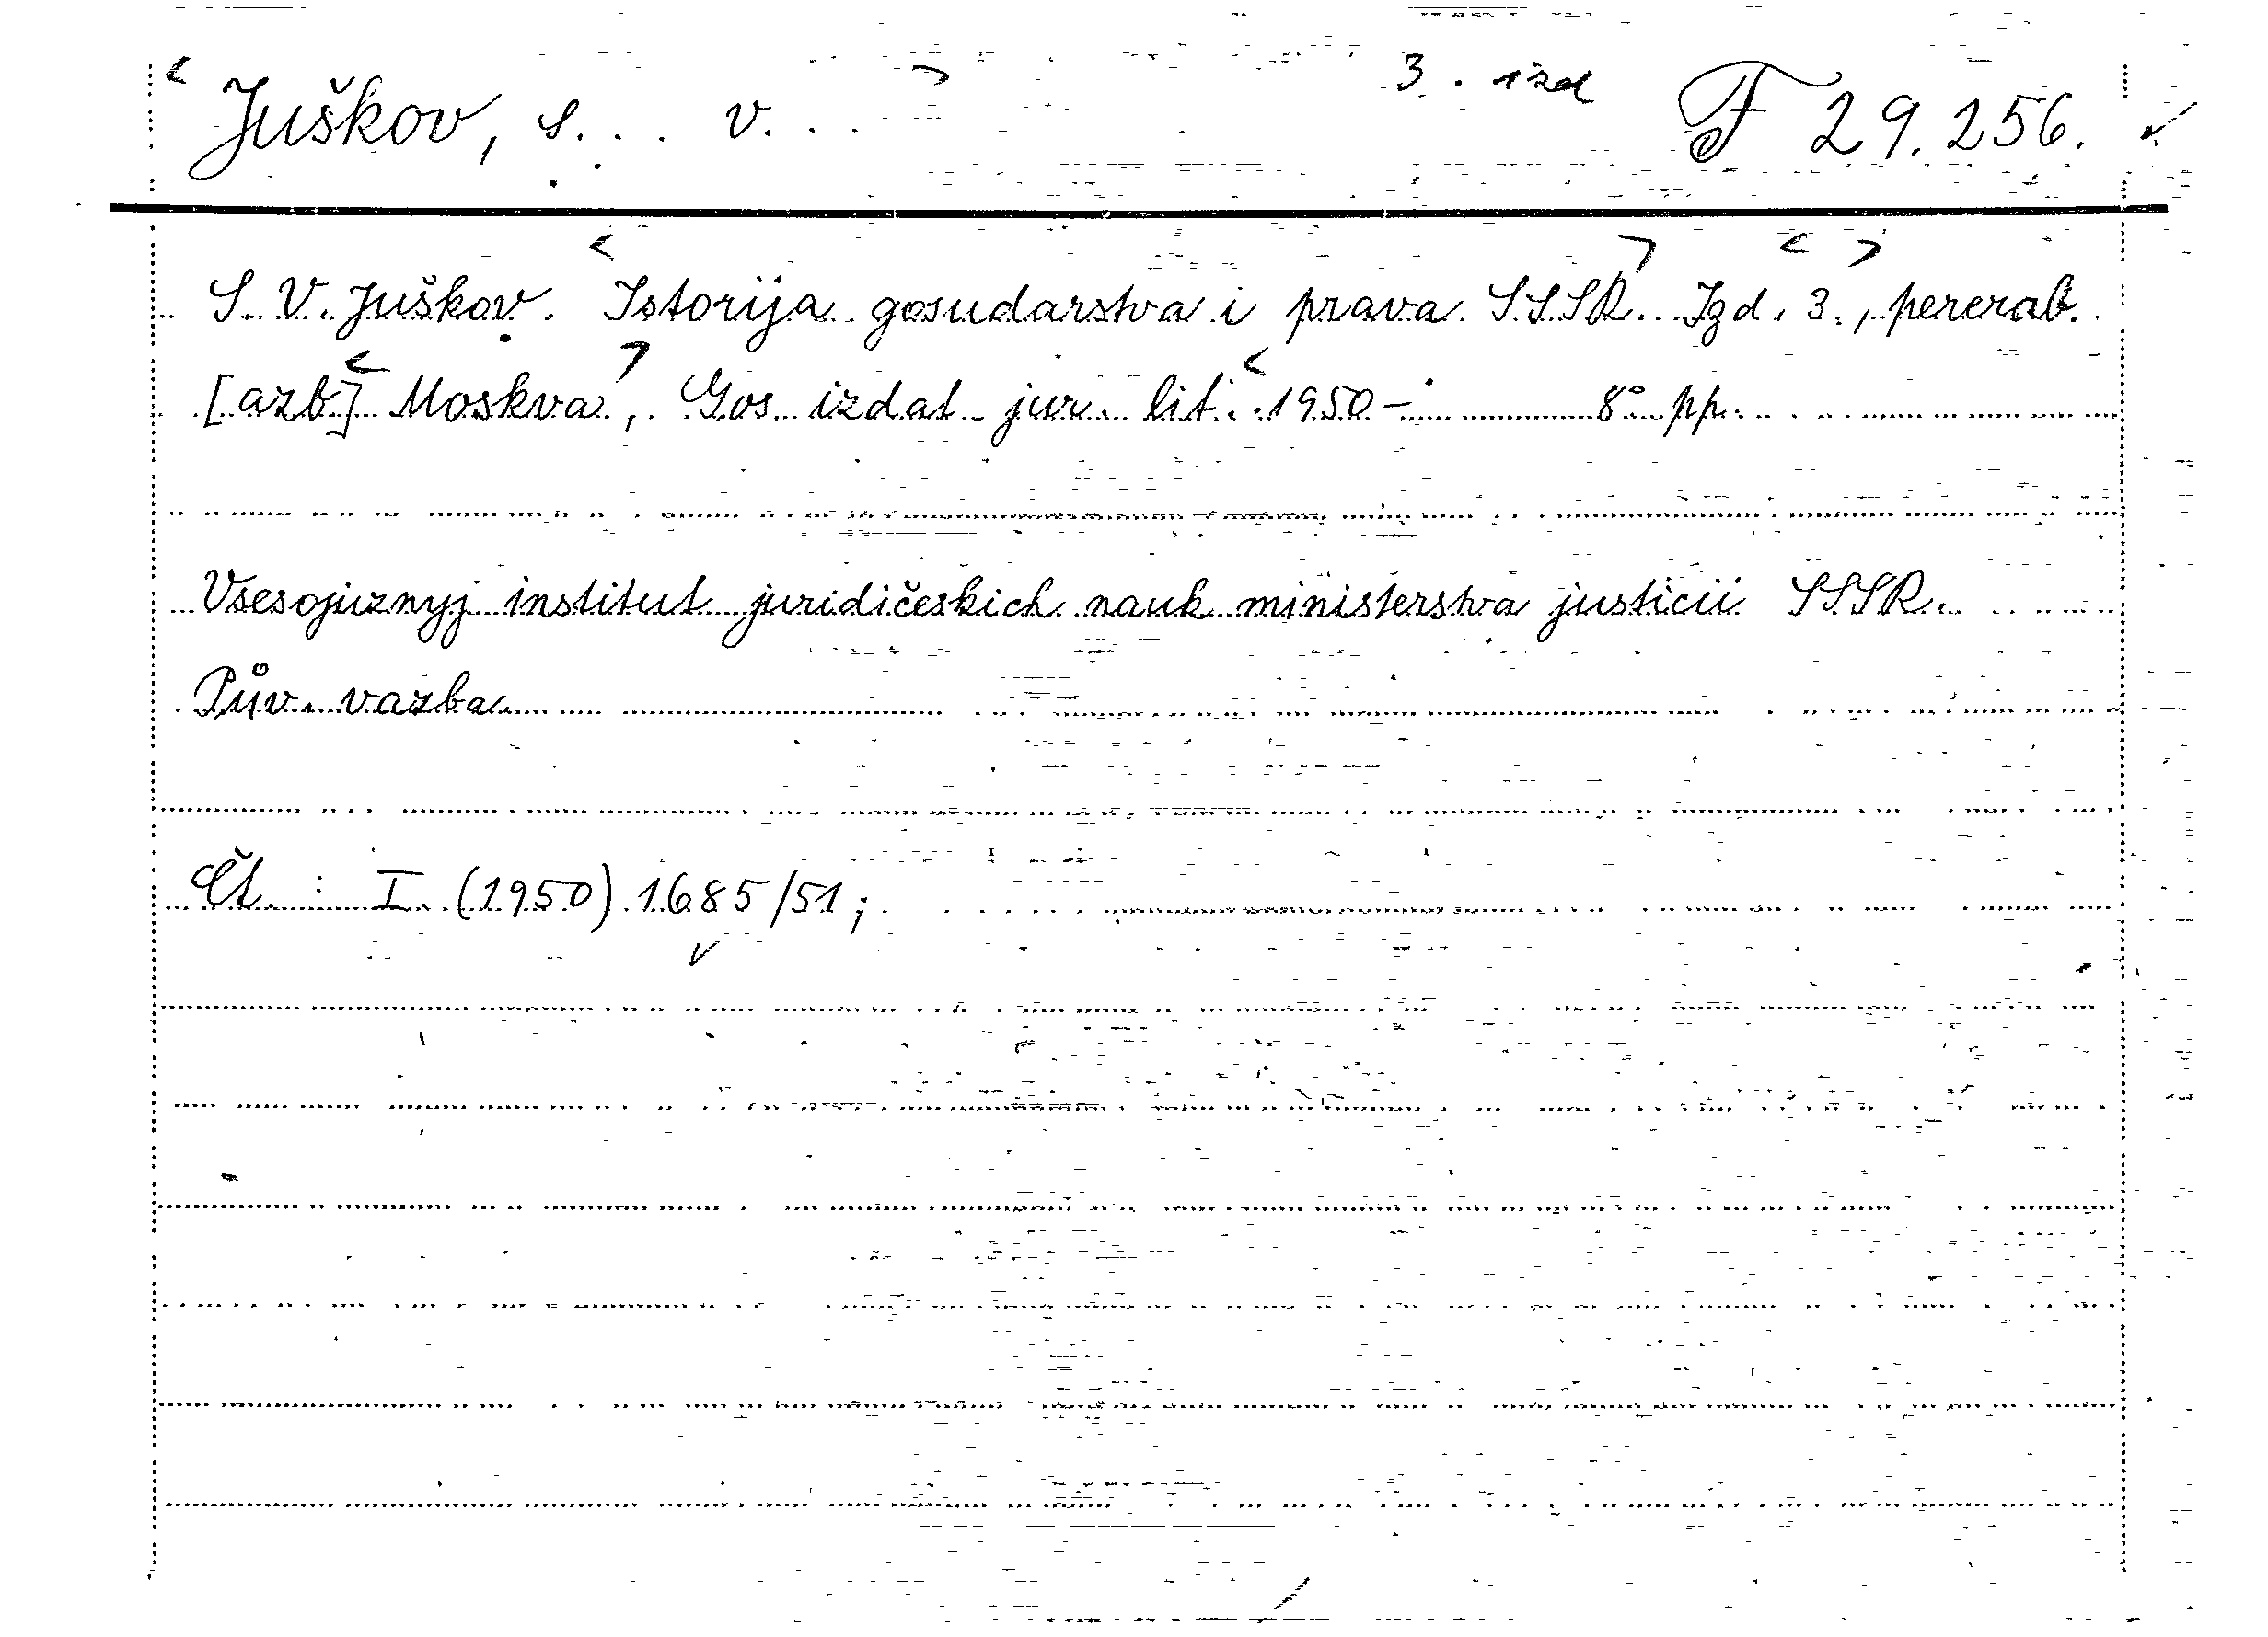 Juškov, S... V... 3. izd F 29.256.
S. V. Juškov. Istorija gosudarstva i prava SSSR. Izd. 3., pererab.
[azb] Moskva, Gos. izdat. jur. lit. 1950 - 8° pp.
Vsesojuznyj institut juridičeskich nauk ministerstva justicii SSSR.
Pův. vazba.
Čt. : I. (1950) 1685/51;